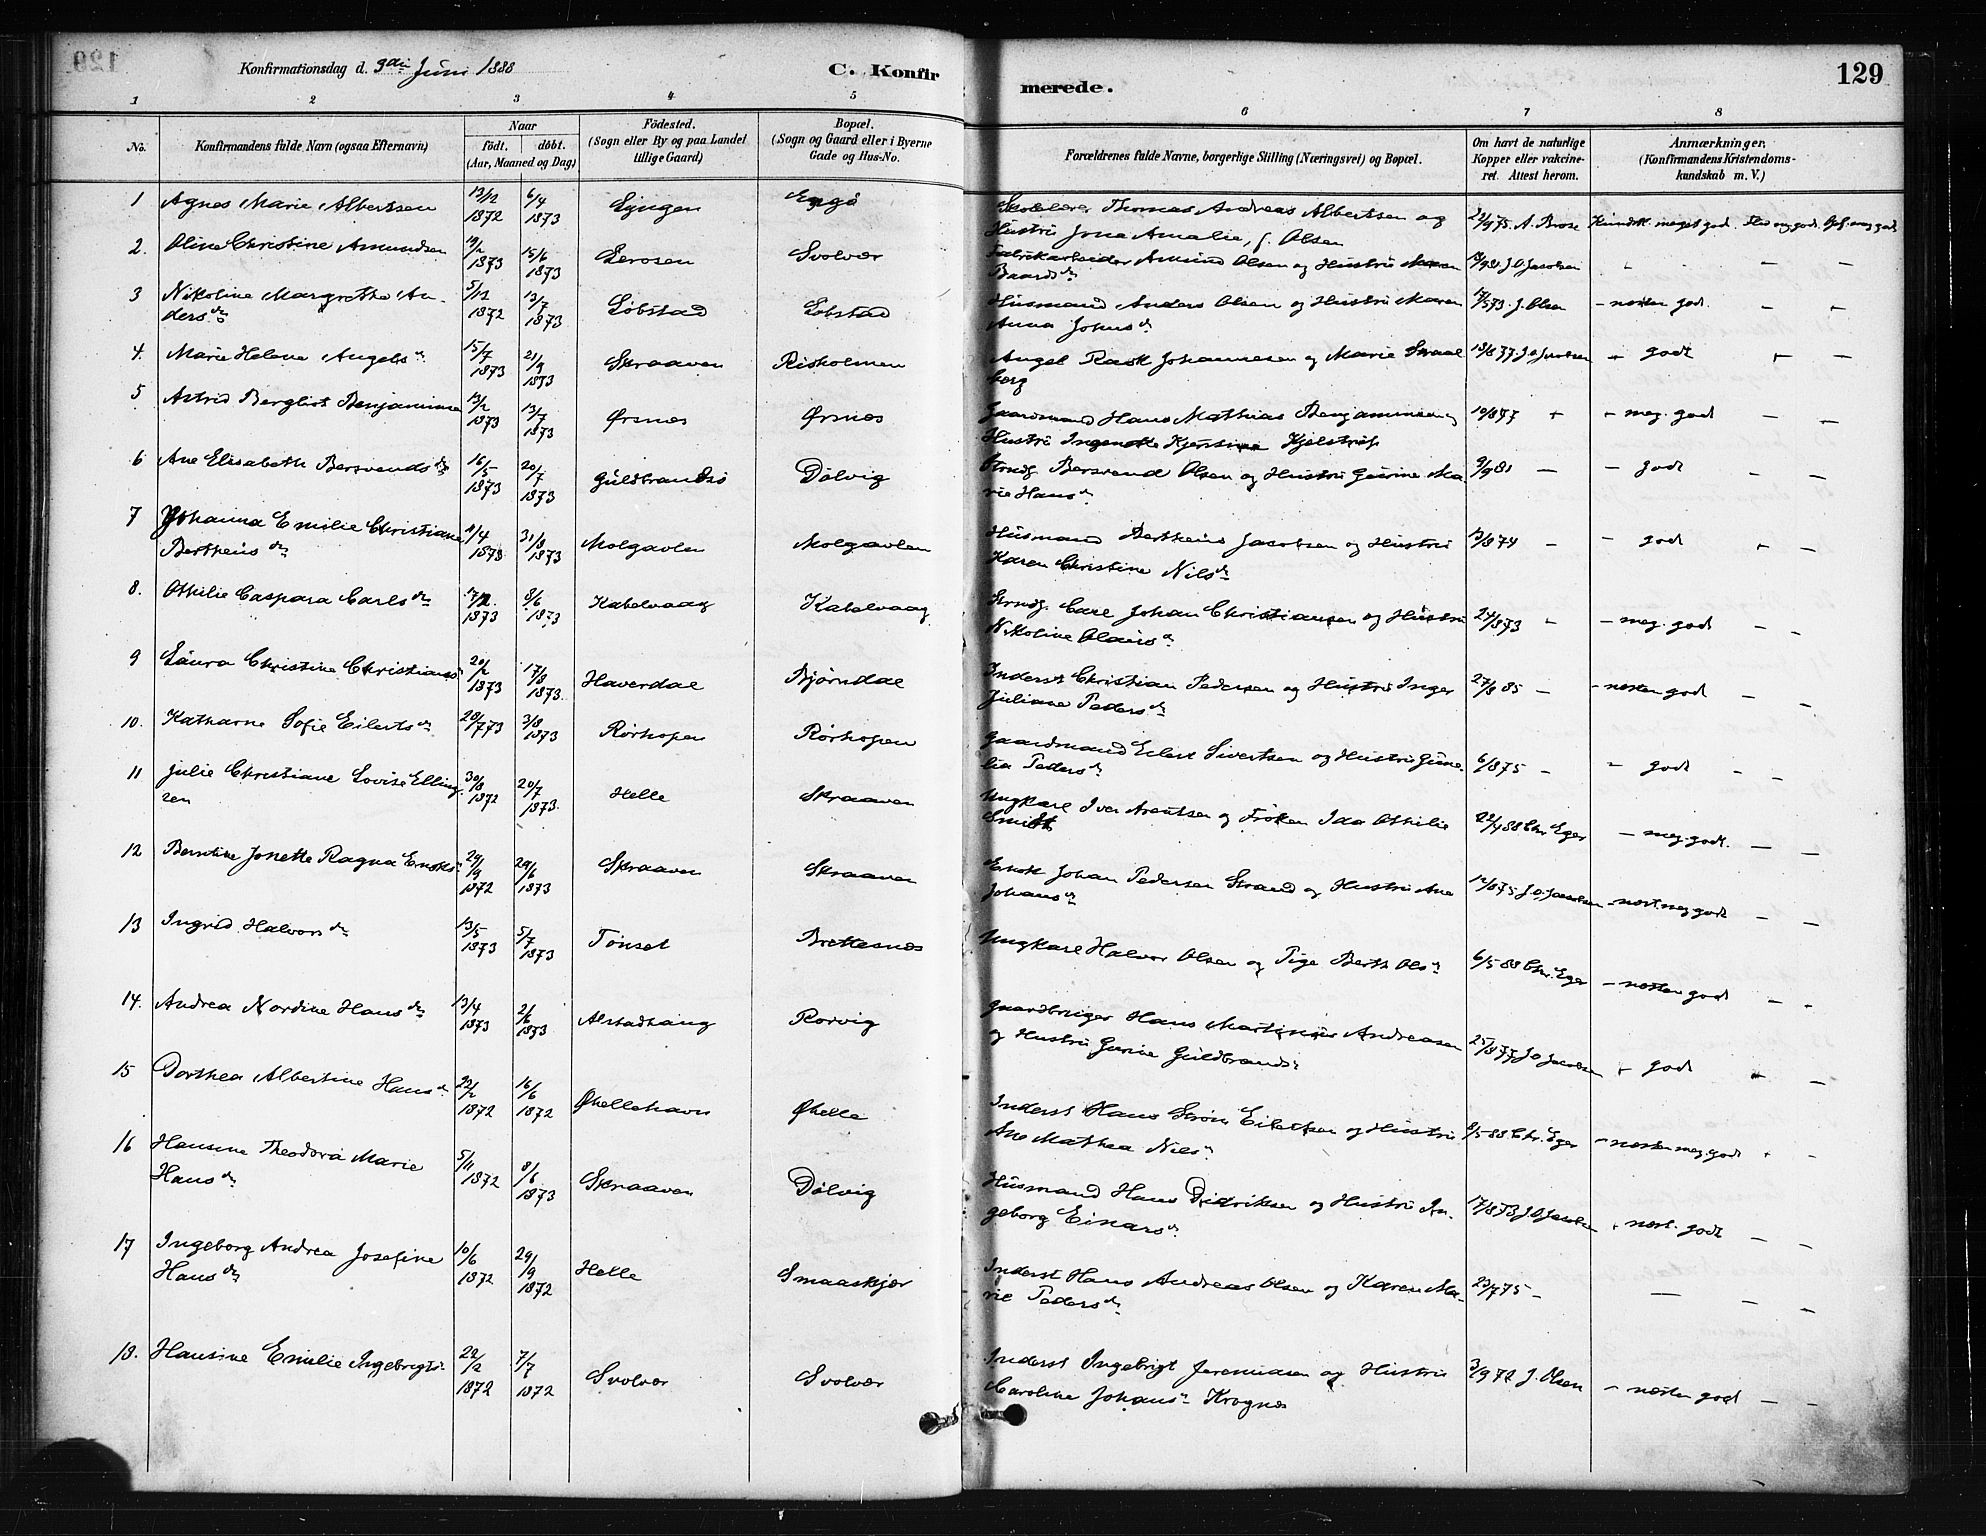 Konfirmationsdag d. 9de Juni 1888
C. Konfir
merede.
129
1 2 3 4 5 6 7 8
No.
Konfirmandens fulde Navn (ogsaa Efternavn)
Naar
født. døbt.
(Aar, Maaned og Dag)
Fødested.
(Sogn eller By og paa Landet
tillige Gaard)
Bopæl.
(Sogn og Gaard eller i Byerne
Gade og Hus-No.
Forældrenes fulde Navne, borgerlige Stilling (Næringsvei) og Bopæl.
Om havt de naturlige
Kopper eller vakcine-
ret. Attest herom.
Anmærkninger.
(Konfirmandens Kristendoms-
kundskab m. V.)
1 Agnes Marie Albertsen 13/12 1872 6/4 1873 Lyngen Engø
Skolelærer Thomas Andreas Albertsen og
Hustru Jona Amalie, f. Olsen 22/9 75. A. Brose Kundsk. meget god. Flid mg. god. Opf. meg. god
2. Oline Christine Amundsen 19/2 1873 15/6 1873 Lerosen Svolvær
Fabrikarbeider Amund Olsen og Hustru Maren
Baardsdr 18/9 81 J O Jacobsen " — —
3 Nikoline Margrethe An-
dersdr 5/12 1872 13/7 1873 Løbstad Løbstad
Husmand Anders Olsen og Hustru Maren
Anna Johnsdr 17/5 73. J. Olsen - nesten god. — —
4. Marie Helene Angelsdr 15/7 1873 21/9 1873 Skraaven Risholmen
Angel Rask Johannesen og Marie Straal
berg 13/8 77 J. O. Jacobsen - godt — —
5 Astrid Bergliot Benjaminsen 13/2 1873 13/7 1873 Ørsnes Ørsnes
Gaardmand Hans Mathias Benjaminsen og
Hustru Kjelstrup 10/8 77 " - meg. god — —
6 Ane Elisabeth Bersvendsdr 16/5 1873 20/7 1873 Guldbrandsø Dølvig
Strmdg. Bersvend Olsen og Hustru Gurine Ma-
rie Hansdr 9/9 81 — - godt — —
7 Johanna Emilie Christiane
Bertheusdr 11/4 1873 31/8 1873 Molgavlen Molgavlen
Husmand Bertheus Jacobsen og Hustru
Karen Christine Nilsdr 13/8 74 — - god — —
8. Othilie Caspara Carlsdr 17/2. 1873 8/6 1873 Kabelvaag Kabelvaag
Strmdg. Carl Johan Christiansen og Hustru
Nikoline Olausdr 24/8 73 — - meg. god — —
9 Laura Christine Christians 20/2 1873 17/8 1873. Haverdal Bjørndal
Inderst Christian Pedersen og Hustru Inger
Juliane Pedersdr 27/8 85 — - nesten god — —
10. Katharne Sofie Eilertsdr 20/7 73 3/8 1873 Rørhopen Rørhopen
Gaardmand Eilert Sivertsen og Hustru Gune-
lia Pedersdr 6/8 75 — - godt — —
11 Julie Christiane Lovise Elling-
sen 30/8 1872 20/7 1873. Helle Skraaven
Ungkarl Iver Arentsen og Frøken Ida Othilie
Smith 22/4 88 Chr. Eger - meg. godt. — —
12 Berntine Jonette Ragna Enoksdr 29/9 1872 29/6 1873 Skraaven Skraaven
Enok Johan Pedersen Strand og Hustru Ane
Johansdr 12/8 75 J. O. Jacobsen - næst. meg. godt — —
13 Ingrid Halvorsdr 13/5 1873 5/7 1873 Tønset Brettesnes
Ungkarl Halvor Olsen og Pige Berth Olsdr 6/5 88 Chr. Eger - nesten god — —
14. Andrea Nordine Hansdr 13/4 1873 2/6 1873 Alstadhaug Rørvig
Gaardbruger Hans Martinus Andreasen
og Hustru Gurine Guldbrandsdr 25/8 77 J O Jacobsen - god — —
15 Dorthea Albertine Hansdr 22/2 1872 16/6 1872 Øhellehavn Øhelle
Inderst Hans Strøm Eilertsen og Hustru
Ane Mathea Nilsdr 8/5 88 Chr. Eger - nesten meg. god — —
16 Hansine Theodora Marie
Hansdr 5/11 1872 8/6 1873 Skraaven Dølvig
Husmand Hans Didriksen og Hustru In-
geborg Einarsdr 17/8 73 J. O Jacobsen - næst. godt — —
17 Ingeborg Andrea Josefine
Hansdr 10/6 1872 29/9 1872 Helle Smaaskjær
Inderst Hans Andreas Olsen og Karen Ma-
rie Pedersdr 23/7 75 — — — —
18. Hansine Emilie Ingebrigts 22/2 1872 7/7 1872 Svolvær Svolvær
Inderst Ingebrigt Jeremiasen og Hustru
Caroline Johansdr Krognes 3/9 72 J. Olsen - nesten god — —